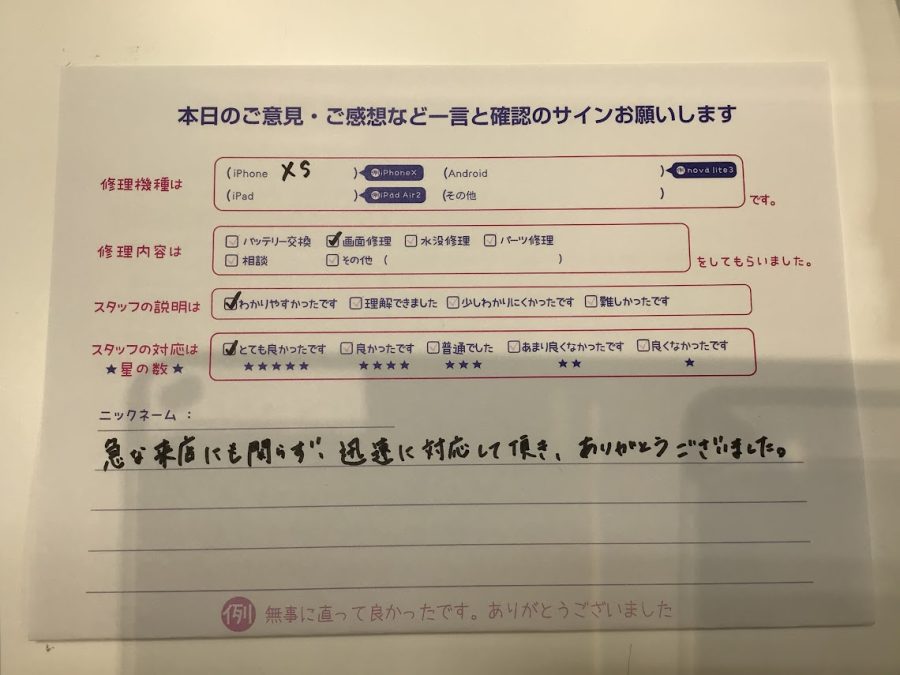 本日のご意見・ご感想など一言と確認のサインお願いします
修理機種は (iPhone XS ) 例iPhoneX (Android ) 例nova lite3
(iPad ) 例iPad Air2 (その他 ) です。
修理内容は バッテリー交換 画面修理 水没修理 パーツ修理
相談 その他 ( ) をしてもらいました。
スタッフの説明は わかりやすかったです 理解できました 少しわかりにくかったです 難しかったです
スタッフの対応は とても良かったです 良かったです 普通でした あまり良くなかったです 良くなかったです
★星の数★ ★★★★★ ★★★★ ★★★ ★★ ★
ニックネーム：
急な来店にも関らず、迅速に対応して頂き、ありがとうございました。
例 無事に直って良かったです。ありがとうございました